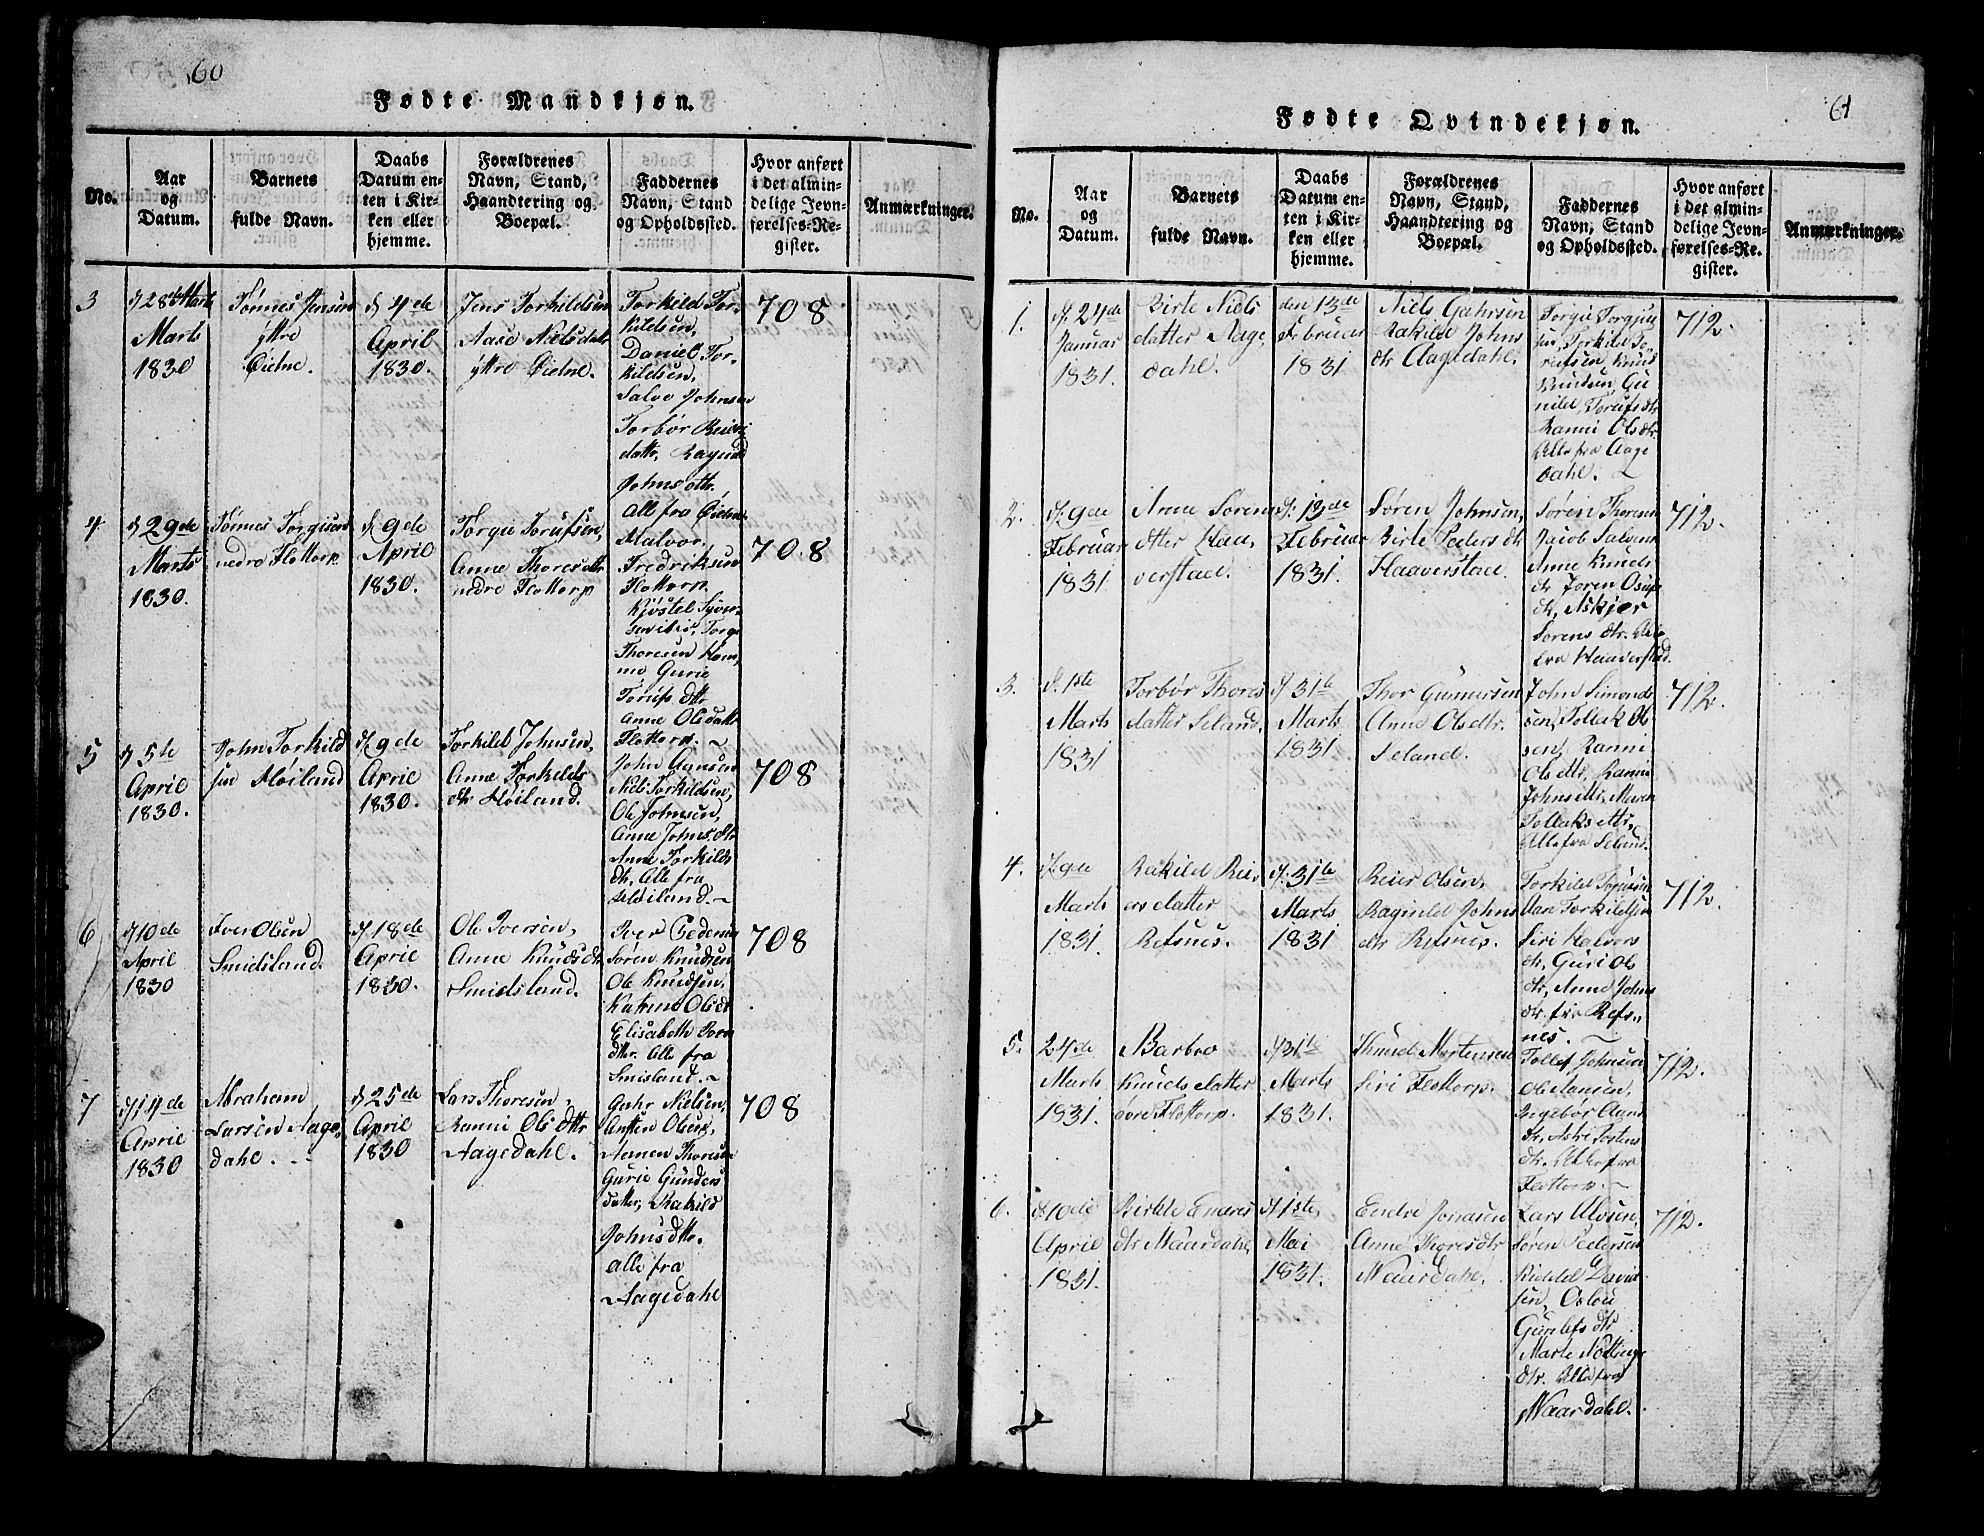 60
Fødte Mandkjøn.
No.
Aar
og
Datum.
Barnets
fulde Navn.
Daabs
Datum en-
ten i Kir-
ken eller
hjemme.
Forældrenes
Navn, Stand,
Haandtering og
Boepæl.
Faddernes
Navn, Stand
og Opholdssted.
Hvor anført
i det almin-
delige Jevn-
førelses-Re-
gister.
Anmærkninger.
3
Marts
1830
Tønnes Jensen
ÿttre
Øielne.
d 4de
April
1830.
Jens Torkildsen
Aase Nielsdatr
ÿttre Øielne.
Torkild Tor-
kildsen,
Daniel Tor-
kildsen,
Salve Johnsen
Torbør
dattr, Ragnild
Johns dttr.
alle fra Øielne.
708
4
d 29de
Marts
1830.
Tønnes Torgiusen
nedre Flottorp
d 9de
April
1830.
Torgiu Torufsen,
Anne Thoresdttr
nedre Flottorp
Halvor
Fredriksen
Flottorp.
Kjøstel Syver-
sen
Thoresen Hom,
me Gurie
Torufs dttr
Anne Olsdattr
Flottorp. ~
708
5
d 5te
April
1830.
John Torkild
sen Høiland
d 9de
April
1830.
Torkild Johnsen,
Anne Torkilds
dtr Høiland.
John Aansen
Niels Torkildsen,
Ole Johnsen,
Anne Johns. dtr
Anne Torkilds
dtr, Alle fra
Høiland. ~
708
6
d 10de
April
1830
Iver Olsen
Smidsland.
d 18de
April
1830.
Ole Iversen,
Anne Knudsdtr
Smidsland.
Iver
Søren Knudsen
Ole Knudsen,
Katrine Olsdtr
Elisabeth Ivers
dttr. Alle fra
Smisland. ~
708
7
d 14de
April
1830
Abraham
Larsen Aage,
dahl. --
d 25de
April
1830
Lars Thoresen,
Ranni Ols dttr
Aagedahl.
Guhr Nielsen,
Aamen Thoresen
Gurie Gunders
datter, Rakild
Johns dttr.
alle fra
Aagedahl
708
61
Fødte Qvindekjøn.
No.
Aar
og
Datum.
Barnets
fulde Navn.
Daabs
Datum en-
ten i Kir-
ken eller
hjemme.
Forældrenes
Navn, Stand,
Haandtering og
Boepæl.
Faddernes
Navn, Stand
og Opholdssted.
Hvor anført
i det almin-
delige Jevn-
førelses-Re-
gister.
Anmærkninger.
1.
d. 24de
Januar
1831.
Birte Niels
datter Aage,
dahl.
den 13de
Februar
1831
Niels Gahrsen
Rakild Johns
dtr Aagedahl.
Torgiu Torgju
sen, Torkild To-
rufsen Knud
Knudsen, Gu
nild, Torufs dtr
Ranni Olsdtr
Alle fra Aage
dahl.
712.
2.
d. 9de
Februar
1831
Anne Sørens
dtter Haa,
verstad.
d. 13de
Februar
1831.
Søren Johnsen,
Birte Peders dtr
Haaverstad.
Søren Thoresen
Jacob Salvesen
Anne Knuds
dtr Joren
dtr, Askjer
Sørens dtr. Alle
fra Haaverstad.
712.
3.
d. 1ste
Marts
1831
Torbør Thores
datter Seland.
d 31te
Marts
1831.
Thor Gunnersen
Anne Olsdtr.
Seland.
John Simonds
sen, Tollak Ol-
sen, Ranni
Ols dttr, Ranni
Johns dttr, Maren
Tollaks dttr,
Alle fra Seland.
712.
4.
d. 9de
Marts
1831.
Rakild Rei,
ersdatter
Refsnes.
d. 31te
Marts
1831
Reier Olsen,
Ragnild Johns
dtr Refsnes.
Torkild Torufsen
Aan Torkildsen
Siri Halvors
dtr, Guri Ols
dtr, Anne Johns
dtr. fra Refs,,
nes. ~
712.
5.
24de
Marts
1831.
Barbro
Knuds datter
øvre Flottorp.
d 31te
Marts
1831.
Knud Mortensen
Siri Flottorp.
Tollef Johnsen
Ole Hansen,
Ingebør Aans
dtr, Astri Tostens
dtr. Alle fra
Flottorp. ~
712.
6.
d. 10de
April
1831.
Birthe Endres
dtr Naardahl.
d 1ste
Mai
1831.
Endre Jonasen
Anne Thoresdtr
Naardahl.
Lars Alvsen,
Søren Pedersen
sen, Oslou
Gunlefs dtr
Marte
dtr. Alle fra
Naardahl.
712.